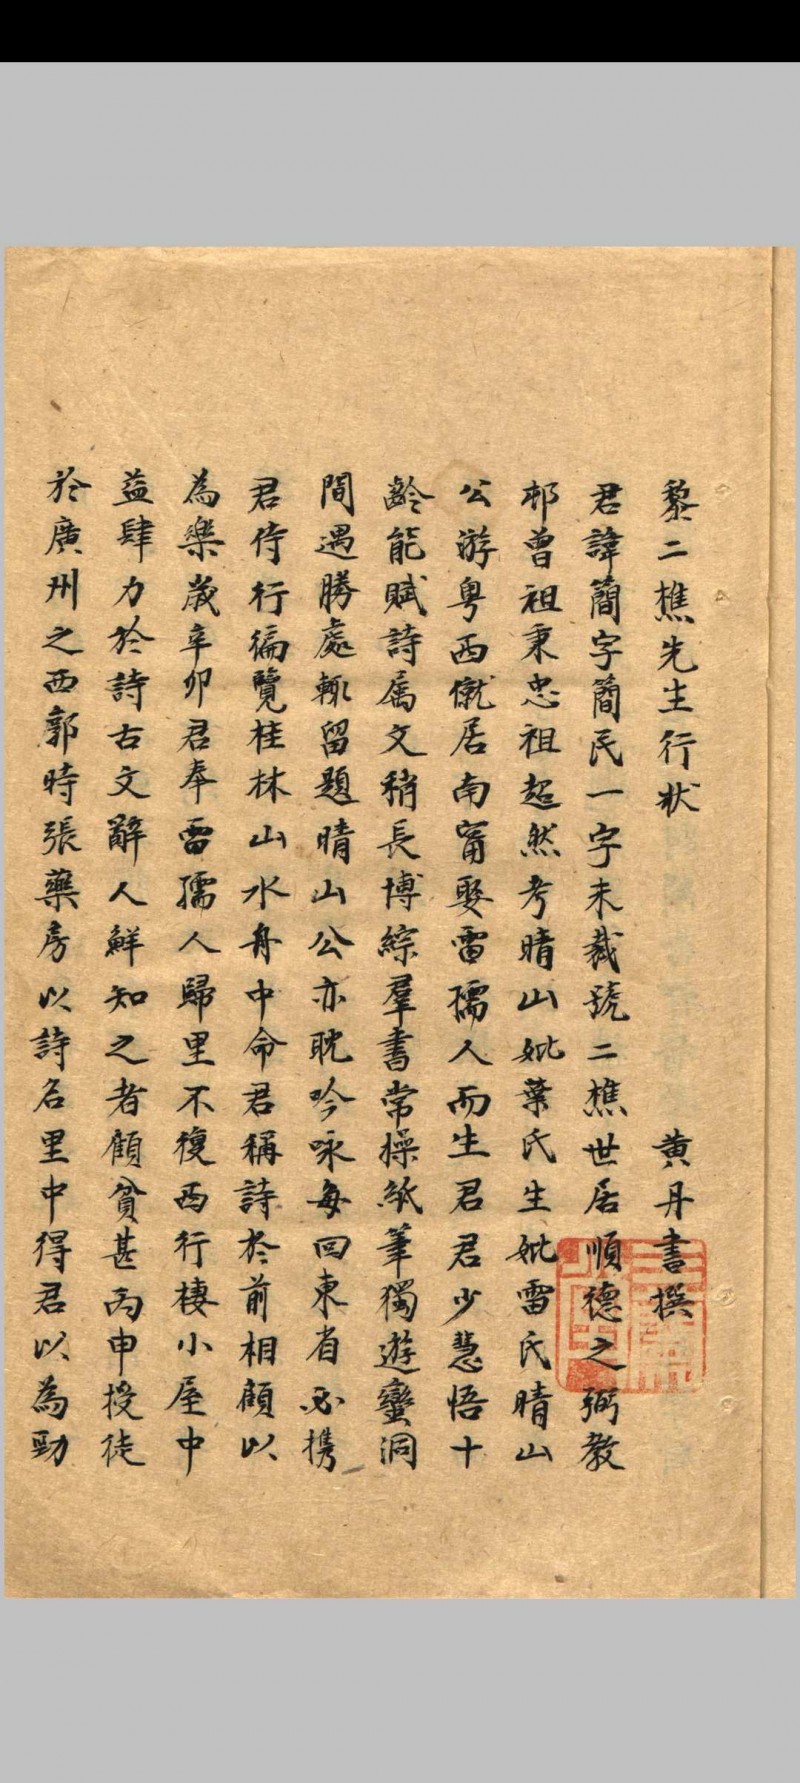 黎二樵先生行狀　黃丹書撰
君諱簡字簡民一字未裁號二樵世居順德之弼教
邨曾祖秉忠祖超然考晴山妣葉氏生妣雷氏晴山
公游粵西僦居南甯娶雷孺人而生君君少慧悟十
齡能賦詩屬文稍長博綜羣書常操紙筆獨遊蠻洞
間遇勝處輒留題晴山公亦耽吟咏每回東省必携
君侍行徧覽桂林山水舟中命君稱詩於前相顧以
為樂歲辛卯君奉雷孺人歸里不復西行棲小屋中
益肆力於詩古文辭人鮮知之者顧貧甚丙申授徒
於廣州之西郭時張藥房以詩名里中得君以為勁